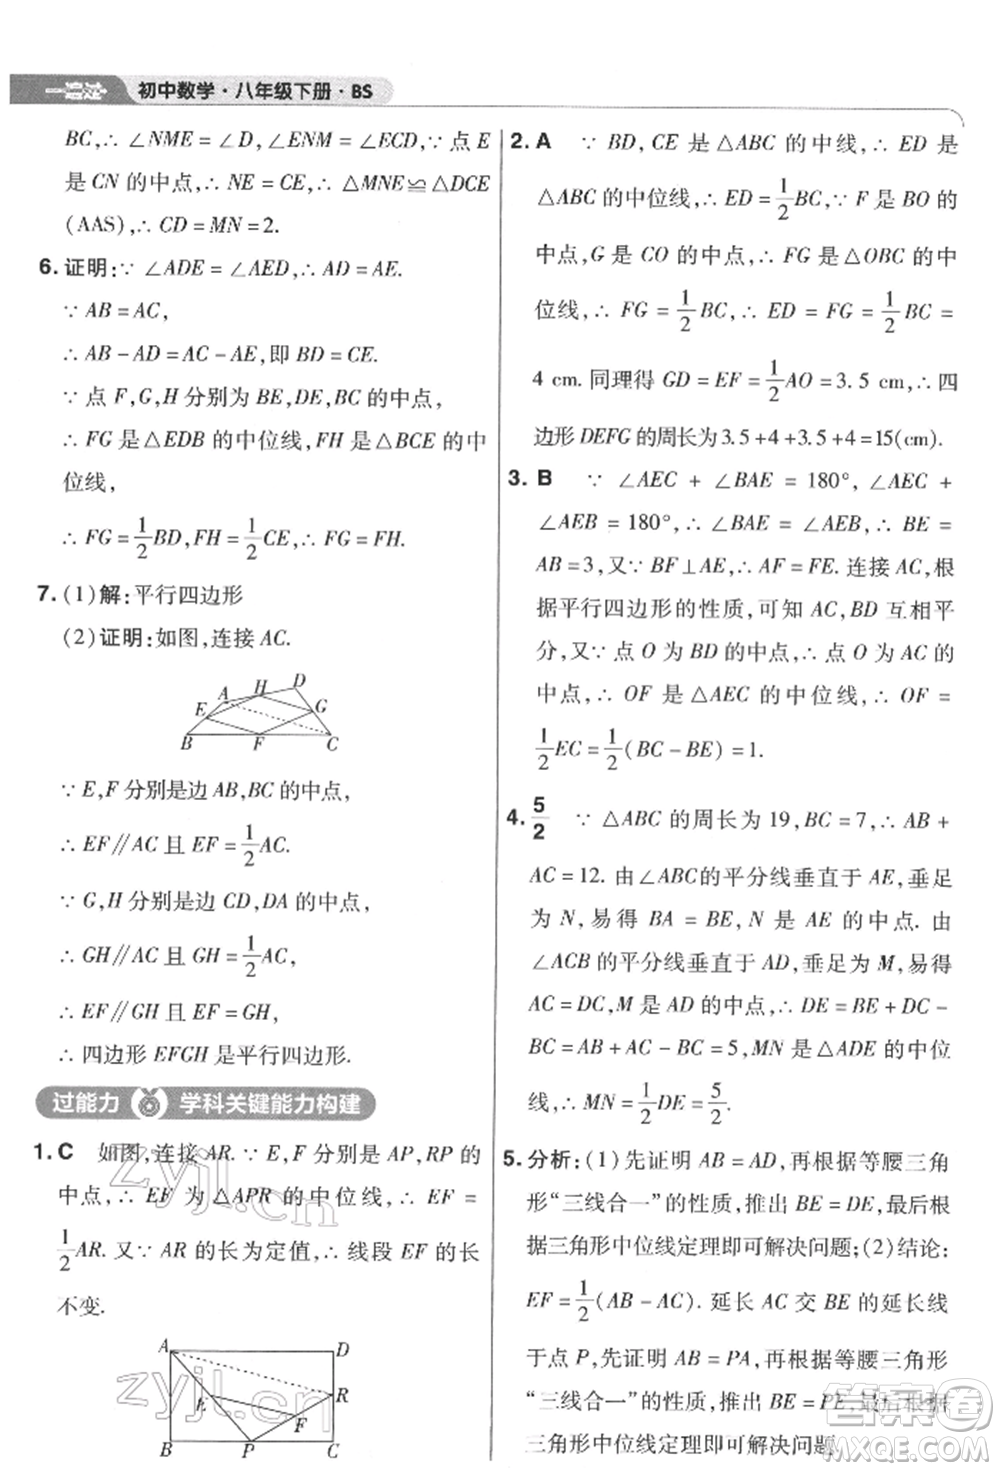 一遍过 初中数学·八年级下册·BS
BC,∴ ∠NME = ∠D,∠ENM = ∠ECD,∵ 点 E
是 CN 的中点,∴ NE = CE,∴ △MNE≌△DCE
(AAS),∴ CD = MN = 2.
6. 证明:∵ ∠ADE = ∠AED,∴ AD = AE.
∵ AB = AC,
∴ AB − AD = AC − AE,即 BD = CE.
∵ 点 F,G,H 分别为 BE,DE,BC 的中点,
∴ FG 是△EDB 的中位线,FH 是△BCE 的中
位线,
∴ FG = 1/2 BD,FH = 1/2 CE,∴ FG = FH.
7. (1)解:平行四边形
(2)证明:如图,连接 AC.
A H D
E G
B F C
∵ E,F 分别是边 AB,BC 的中点,
∴ EF∥AC 且 EF = 1/2 AC.
∵ G,H 分别是边 CD,DA 的中点,
∴ GH∥AC 且 GH = 1/2 AC,
∴ EF∥GH 且 EF = GH,
∴ 四边形 EFGH 是平行四边形.
过能力 学科关键能力构建
1. C 如图,连接 AR. ∵ E,F 分别是 AP,RP 的
中点,∴ EF 为 △APR 的中位线,∴ EF =
1/2 AR. 又∵ AR 的长为定值,∴ 线段 EF 的长
不变.
A D
E R
F
B P C
2. A ∵ BD,CE 是 △ABC 的中线,∴ ED 是
△ABC 的中位线,∴ ED = 1/2 BC,∵ F 是 BO 的
中点,G 是 CO 的中点,∴ FG 是△OBC 的中
位线,∴ FG = 1/2 BC,∴ ED = FG = 1/2 BC =
4 cm. 同理得 GD = EF = 1/2 AO = 3.5 cm,∴ 四
边形 DEFG 的周长为 3.5 +4 +3.5 +4 = 15(cm).
3. B ∵ ∠AEC + ∠BAE = 180°, ∠AEC +
∠AEB = 180°,∴ ∠BAE = ∠AEB,∴ BE =
AB = 3,又∵ BF⊥AE,∴ AF = FE. 连接 AC,根
据平行四边形的性质,可知 AC,BD 互相平
分,又∵ 点 O 为 BD 的中点,∴ 点 O 为 AC 的
中点,∴ OF 是 △AEC 的中位线,∴ OF =
1/2 EC = 1/2 (BC − BE) = 1.
4. 5/2 ∵ △ABC 的周长为 19,BC = 7,∴ AB +
AC = 12. 由∠ABC的平分线垂直于 AE,垂足
为 N,易得 BA = BE,N 是 AE 的中点. 由
∠ACB 的平分线垂直于 AD,垂足为 M,易得
AC = DC,M 是 AD 的中点,∴ DE = BE + DC −
BC = AB + AC − BC = 5,MN 是△ADE 的中位
线,∴ MN = 1/2 DE = 5/2.
5. 分析:(1)先证明 AB = AD,再根据等腰三角
形“三线合一”的性质,推出 BE = DE,最后根
据三角形中位线定理即可解决问题;(2)结论:
EF = 1/2 (AB − AC). 延长 AC 交 BE 的延长线
于点 P,先证明 AB = PA,再根据等腰三角形
“三线合一”的性质,推出 BE = PE,最后根据
三角形中位线定理即可解决问题.
zyjl.cn
zyjl.cn
答案圈
MXQE.COM